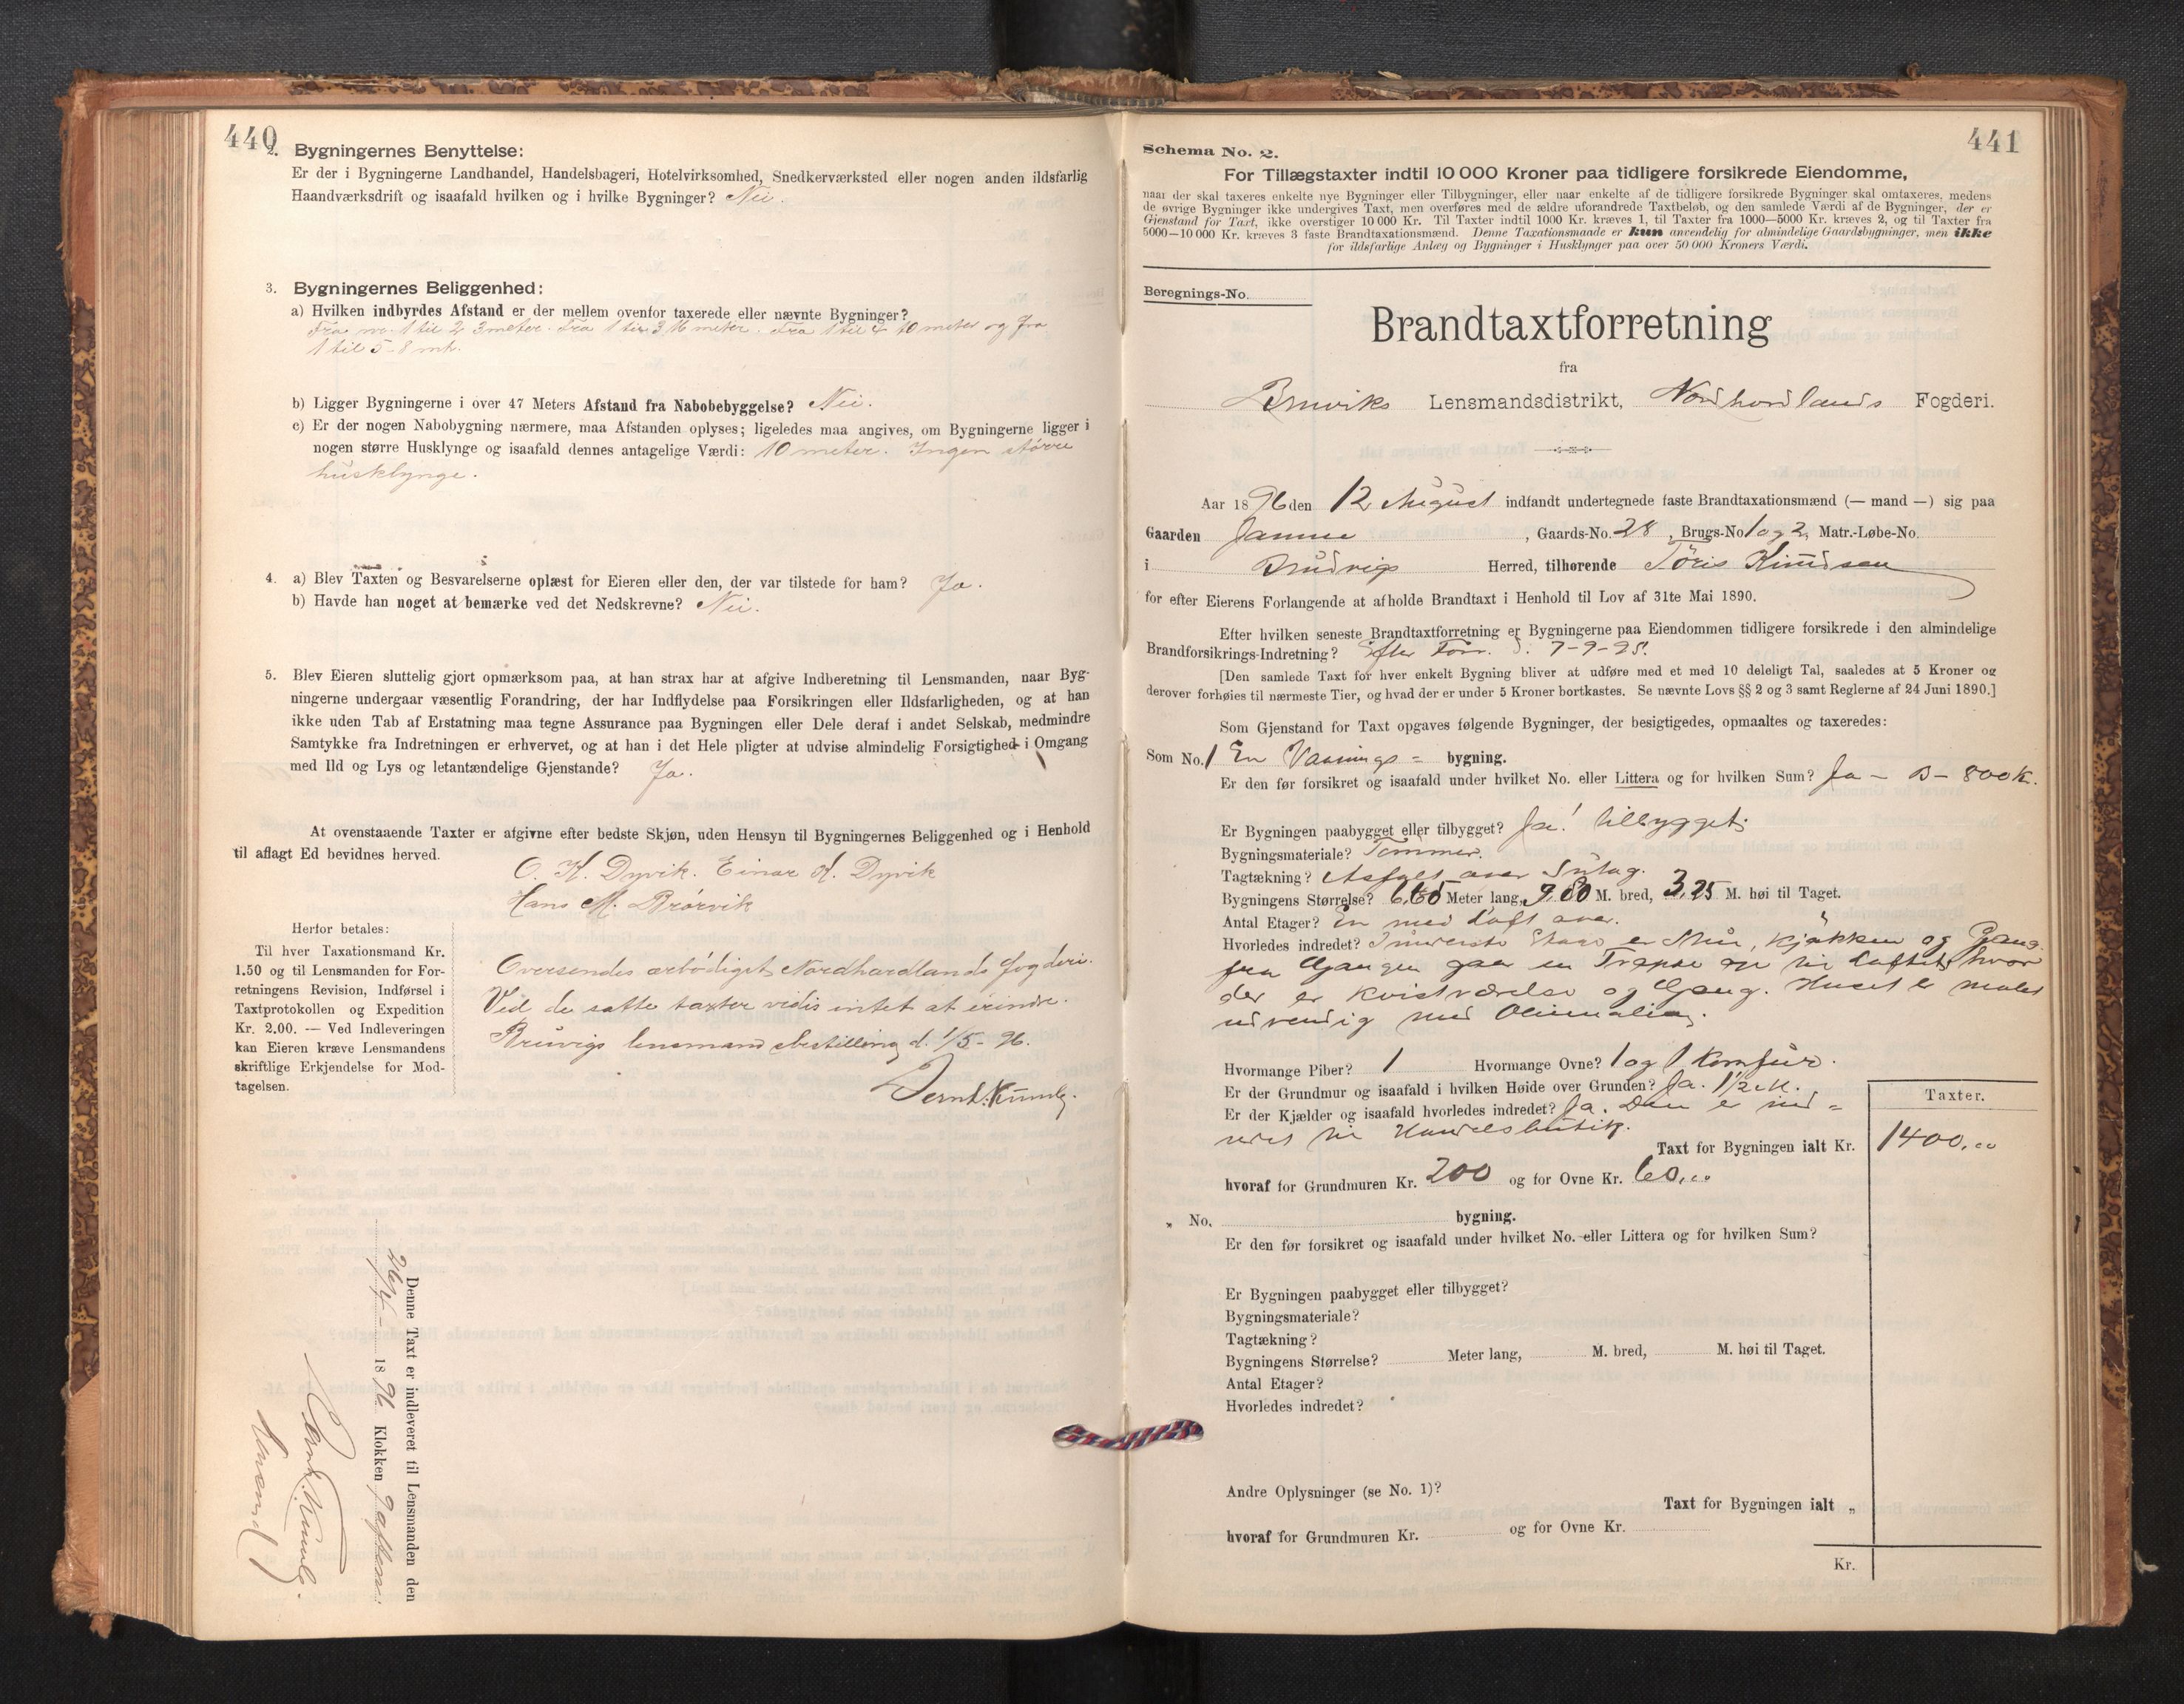 440
2. Bygningernes Benyttelse:
Er der i Bygningerne Landhandel, Handelsbageri, Hotelvirksomhed, Snedkerværksted eller nogen anden ildsfarlig
Haandværksdrift og isaafald hvilken og i hvilke Bygninger? Nei.
3. Bygningernes Beliggenhed:
a) Hvilken indbyrdes Afstand er der mellem ovenfor taxerede eller nævnte Bygninger?
Fra no. 1 til 2 3 meter. Fra 1 til 3 16 meter. Fra 1 til 4 10 meter og fra
1 til 5 - 8 mtr.
b) Ligger Bygningerne i over 47 Meters Afstand fra Nabobebyggelse? Nei.
c) Er der nogen Nabobygning nærmere, maa Afstanden oplyses; ligeledes maa angives, om Bygningerne ligger i
nogen større Husklynge og isaafald dennes antagelige Værdi: 10 meter. Ingen større
husklynge.
4. a) Blev Taxten og Besvarelserne oplæst for Eieren eller den, der var tilstede for ham? Ja.
b) Havde han noget at bemærke ved det Nedskrevne? Nei.
5. Blev Eieren sluttelig gjort opmærksom paa, at han strax har at afgive Indberetning til Lensmanden, naar Byg-
ningerne undergaar væsentlig Forandring, der har Indflydelse paa Forsikringen eller Ildsfarligheden, og at han
ikke uden Tab af Erstatning maa tegne Assurance paa Bygningen eller Dele deraf i andet Selskab, medmindre
Samtykke fra Indretningen er erhvervet, og at han i det Hele pligter at udvise almindelig Forsigtighed i Omgang
med Ild og Lys og letantændelige Gjenstande? Ja.
At ovenstaaende Taxter er afgivne efter bedste Skjøn, uden Hensyn til Bygningernes Beliggenhed og i Henhold
til aflagt Ed bevidnes herved.
O. K. Dyvik. Einar K. Dyvik
Hans M. Brørvik
Herfor betales:
Til hver Taxationsmand Kr.
1.50 og til Lensmanden for For-
retningens Revision, Indførsel i
Taxtprotokollen og Expedition
Kr. 2.00. — Ved Indleveringen
kan Eieren kræve Lensmandens
skriftlige Erkjendelse for Mod-
tagelsen.
Oversendes ærbødigst Nordhordlands fogderi.
Ved de satte taxter vides intet at erindre.
Bruvigs lensmandsbestilling d. 1/5 - 96.
Denne Taxt er indleveret til Lensmanden den
26/4 - 1896 Klokken 9 aften
441
Schema No. 2.
For Tillægstaxter indtil 10 000 Kroner paa tidligere forsikrede Eiendomme,
naar der skal taxeres enkelte nye Bygninger eller Tilbygninger, eller naar enkelte af de tidligere forsikrede Bygninger skal omtaxeres, medens
de øvrige Bygninger ikke undergives Taxt, men overføres med de ældre uforandrede Taxtbeløb, og den samlede Værdi af de Bygninger, der er
Gjenstand for Taxt, ikke overstiger 10 000 Kr. Til Taxter indtil 1000 Kr. kræves 1, til Taxter fra 1000—5000 Kr. kræves 2, og til Taxter fra
5000—10 000 Kr. kræves 3 faste Brandtaxationsmænd. Denne Taxationsmaade er kun anvendelig for almindelige Gaardsbygninger, men ikke
for ildsfarlige Anlæg og Bygninger i Husklynger paa over 50 000 Kroners Værdi.
Beregnings-No.
Brandtaxtforretning
fra
Bruviks Lensmandsdistrikt, Nordhordlands Fogderi.
Aar 1896 den 12 August indfandt undertegnede faste Brandtaxationsmænd (— mand —) sig paa
Gaarden Jamne, Gaards-No. 28, Brugs-No 1 og 2, Matr.-Løbe-No.
i Brudvigs Herred, tilhørende Tøris Knudsen
for efter Eierens Forlangende at afholde Brandtaxt i Henhold til Lov af 31te Mai 1890.
Efter hvilken seneste Brandtaxtforretning er Bygningerne paa Eiendommen tidligere forsikrede i den almindelige
Brandforsikrings-Indretning? Efter Forr. d. 7-9-95.
[Den samlede Taxt for hver enkelt Bygning bliver at udføre med et med 10 deleligt Tal, saaledes at 5 Kroner og
derover forhøies til nærmeste Tier, og hvad der er under 5 Kroner bortkastes. Se nævnte Lovs §§ 2 og 3 samt Reglerne af 24 Juni 1890.]
Som Gjenstand for Taxt opgaves følgende Bygninger, der besigtigedes, opmaaltes og taxeredes:
Som No. 1 En Vaanings= bygning.
Er den før forsikret og isaafald under hvilket No. eller Littera og for hvilken Sum? Ja - B - 800 K.
Er Bygningen paabygget eller tilbygget? Ja! tilbygget
Bygningsmateriale? Tømmer.
Tagtækning? Asfalt over Sutag.
Bygningens Størrelse? 6,60 Meter lang, 7,80 M. bred, 3,25 M. høi til Taget.
Antal Etager? En med Loft over.
Hvorledes indredet? Underste Etage er Stue, Kjøkken og Gang.
fra Gangen gaar en Trappe op til Loftet, hvor
der er Kvistværelse og Gang. Huset er malet
udvendig med Oliemaling.
Hvormange Piber? 1 Hvormange Ovne? 1 og 1 Komfur.
Er der Grundmur og isaafald i hvilken Høide over Grunden? Ja. 1½ M.
Er der Kjælder og isaafald hvorledes indredet? Ja. Den er ind=
redet til Handelsbutik.
Taxter.
Taxt for Bygningen ialt Kr. 1400,00
hvoraf for Grundmuren Kr. 200 og for Ovne Kr. 60,00
„ No. bygning.
Er den før forsikret og isaafald under hvilket No. eller Littera og for hvilken Sum?
Er Bygningen paabygget eller tilbygget?
Bygningsmateriale?
Tagtækning?
Bygningens Størrelse? Meter lang, M. bred, M. høi til Taget.
Antal Etager?
Hvorledes indredet?
Andre Oplysninger (se No. 1)?
Taxt for Bygningen ialt „
hvoraf for Grundmuren Kr. og for Ovne Kr.
Kr.